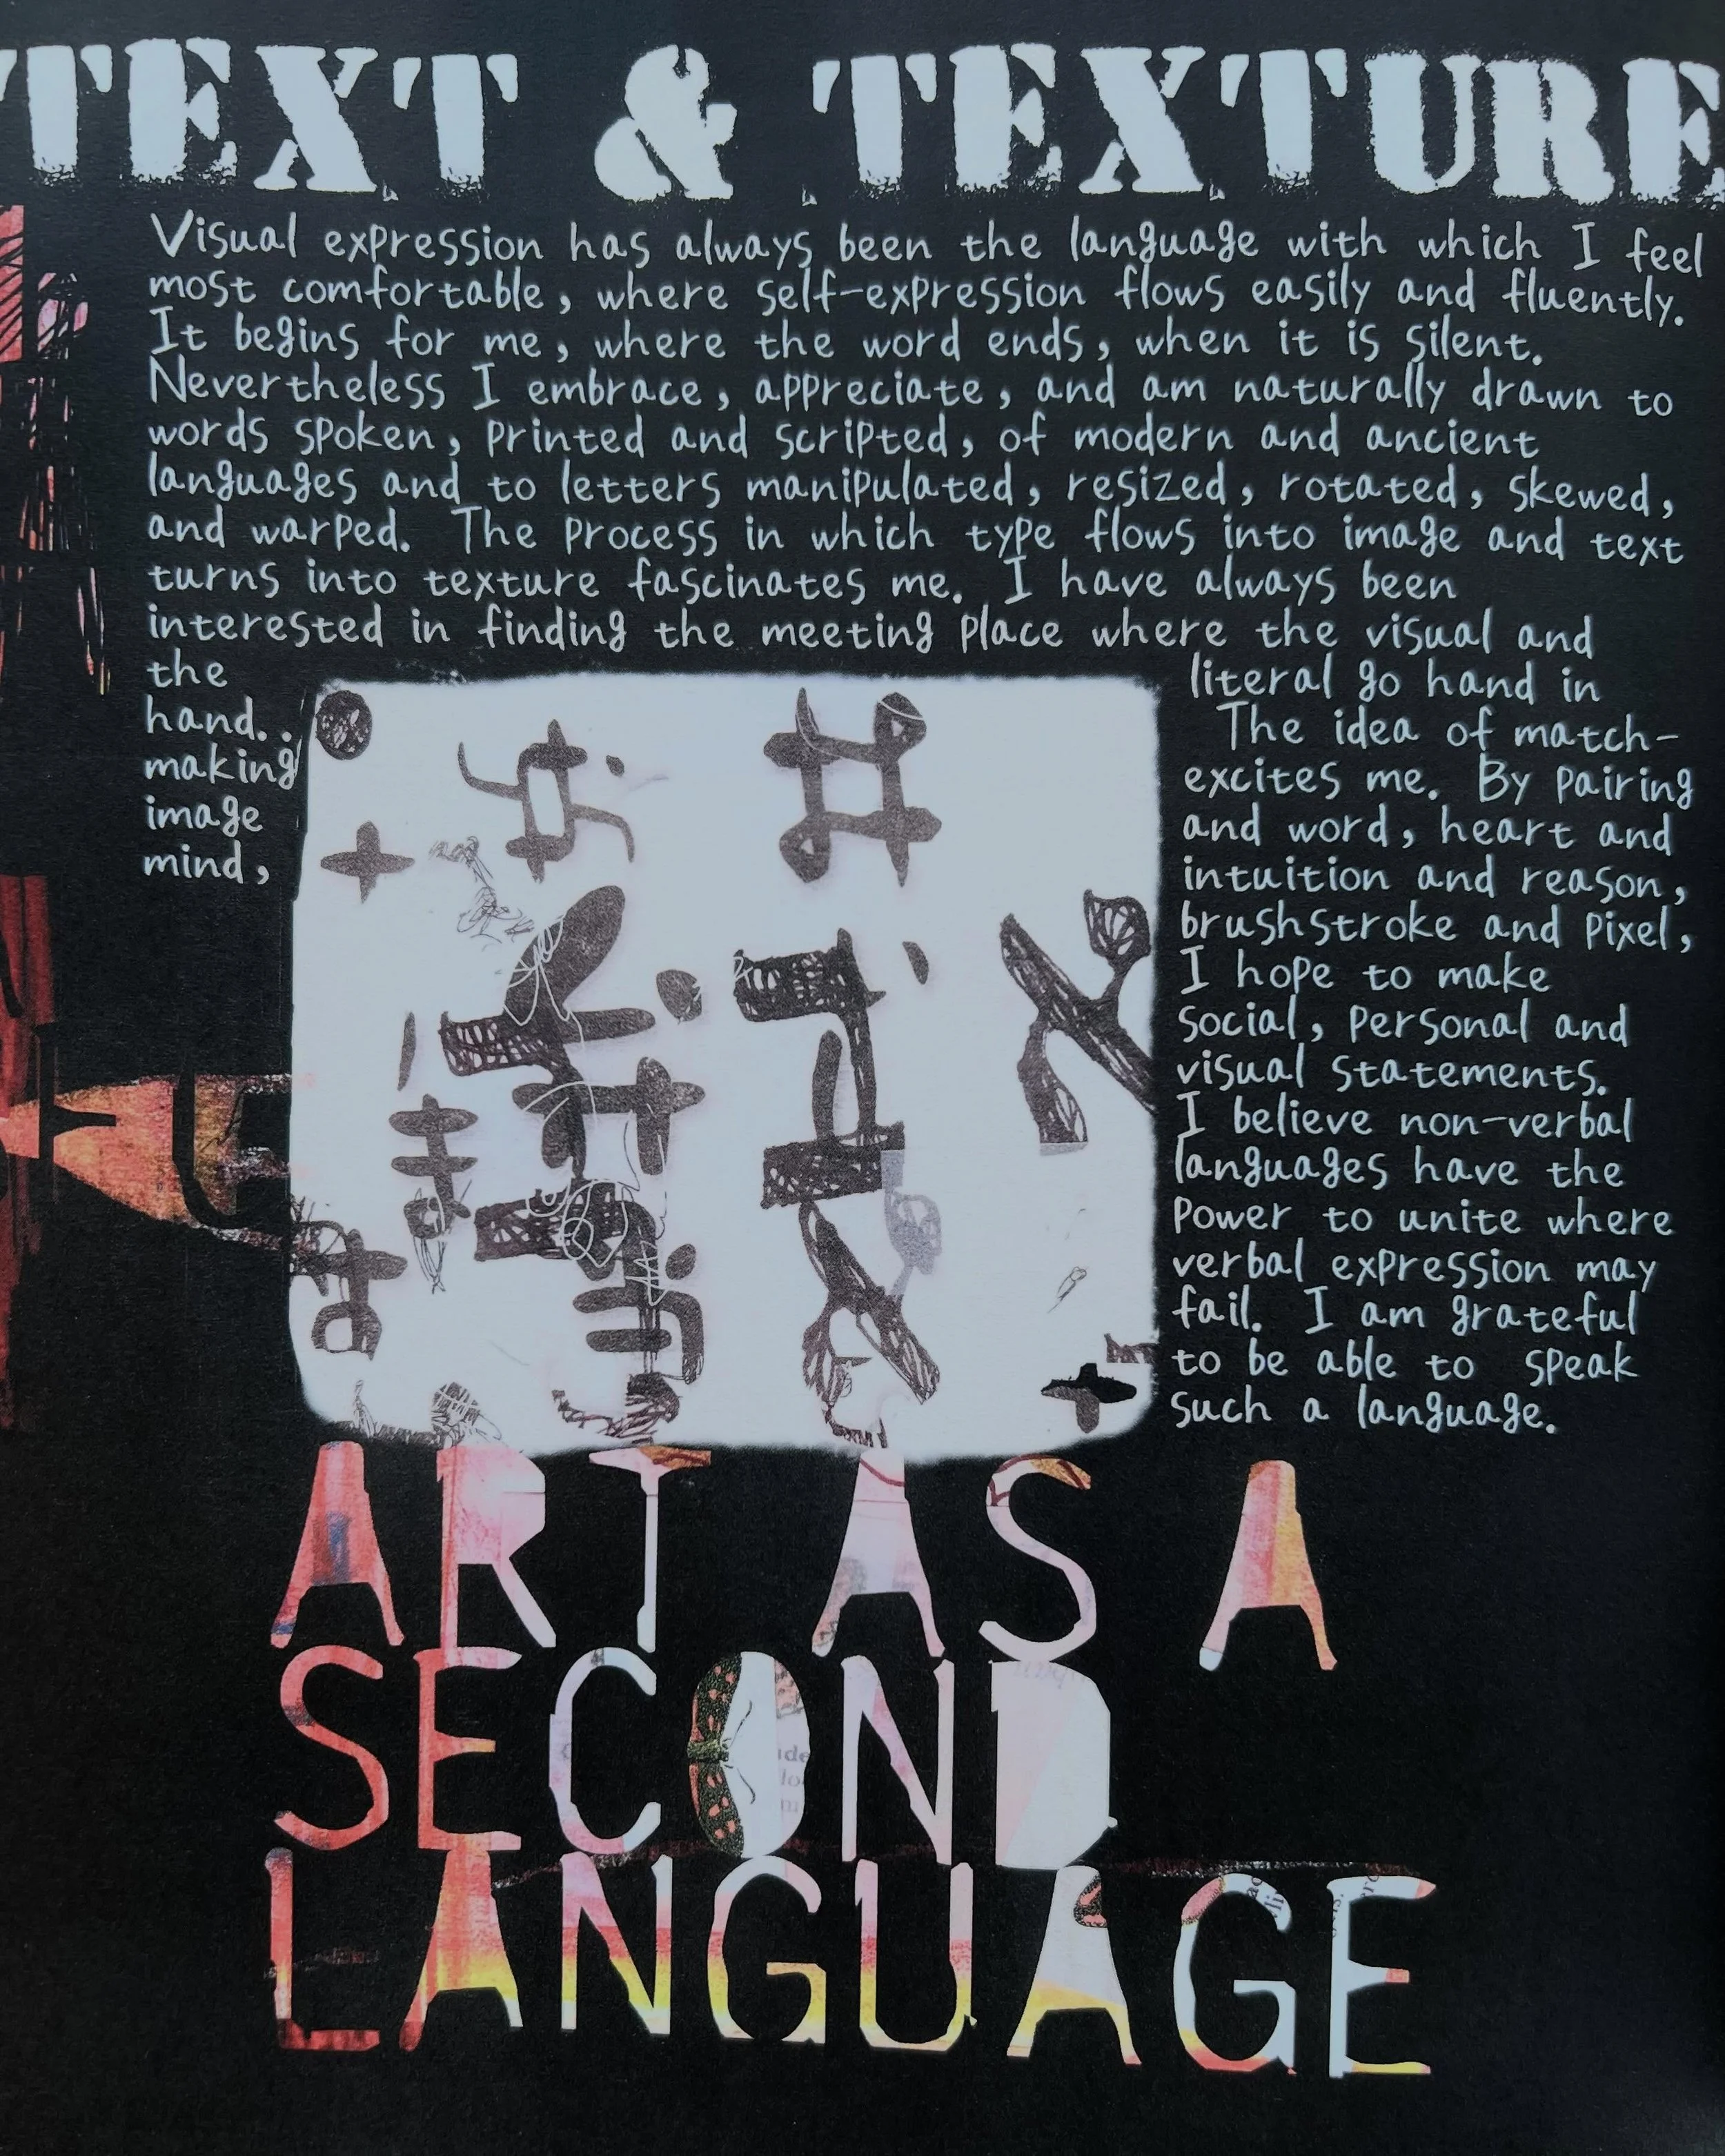 TEXT & TEXTURE
Visual expression has always been the language with which I feel
most comfortable, where self-expression flows easily and fluently.
It begins for me, where the word ends, when it is silent.
Nevertheless I embrace, appreciate, and am naturally drawn to
words spoken, printed and scripted, of modern and ancient
languages and to letters manipulated, resized, rotated, skewed,
and warped. The process in which type flows into image and text
turns into texture fascinates me. I have always been
interested in finding the meeting place where the visual and
the literal go hand in
hand.. The idea of match-
making excites me. By pairing
image and word, heart and
mind, intuition and reason,
brushstroke and pixel,
I hope to make
social, personal and
visual statements.
I believe non-verbal
languages have the
power to unite where
verbal expression may
fail. I am grateful
to be able to speak
such a language.
ART AS A
SECOND
LANGUAGE